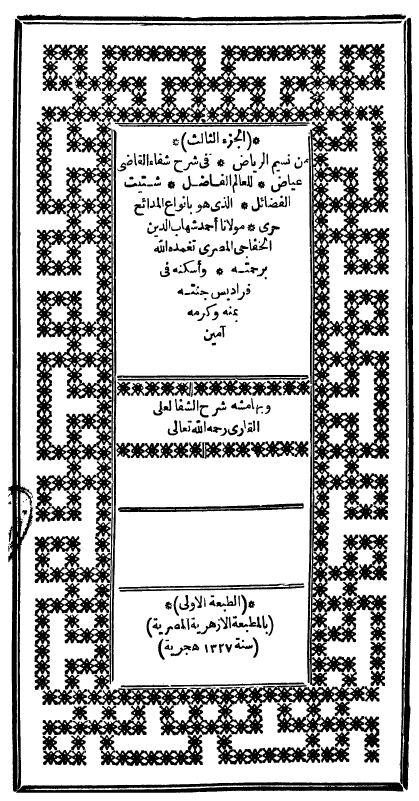 *(الجزء الثالث)*
من نسيم الرياض * فى شرح شفاء القاضى
عياض * للعالم الفاضل * شتيت
الفضائل * الذى هو بانواع المدائح
حرى * مولانا أحمد شهاب الدين
الخفاجى المصرى تغمده الله
برحمته * وأسكنه فى
فراديس جنته
بمنه وكرمه
آمين
وبهامشه شرح الشفا لعلى
القارى رحمه الله تعالى
*(الطبعة الاولى)*
(بالمطبعة الازهرية المصرية)
(سنة ١٣٢٧ هجرية)